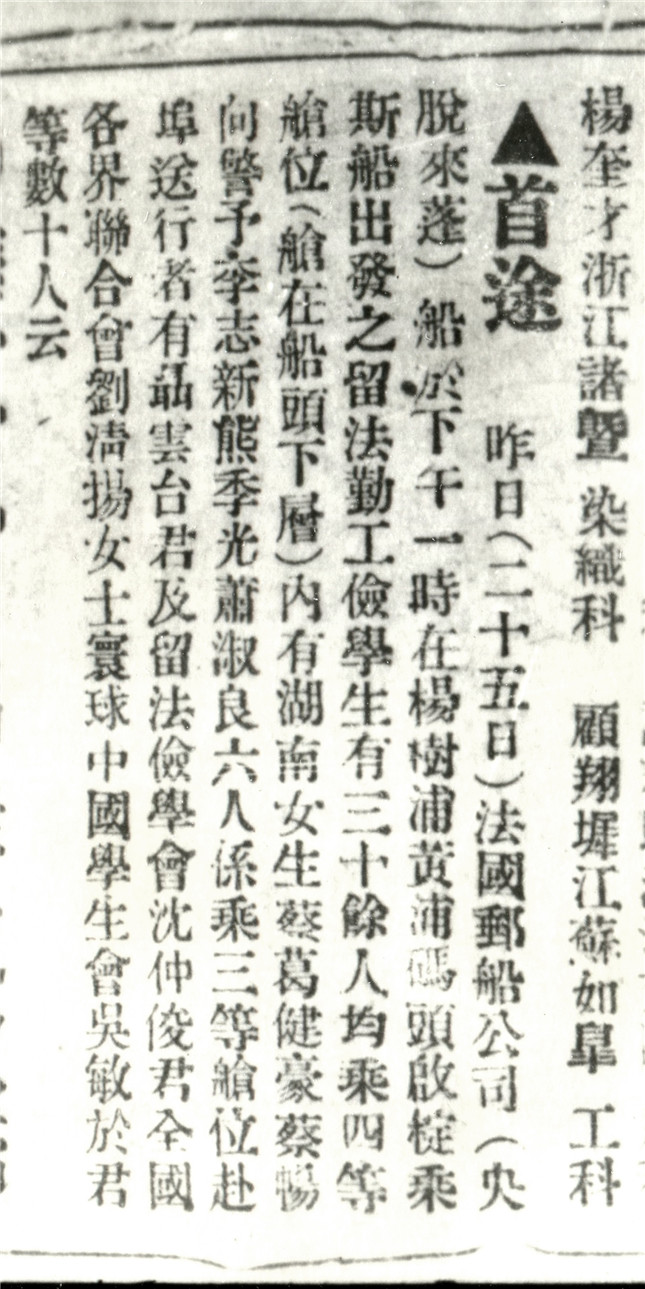 楊奎才浙江諸暨 染織科 顧翔墀江蘇如皐 工科
▲首途 昨日(二十五日)法國郵船公司(央
脫來蓬)船於下午一時在楊樹浦黃浦碼頭啟椗乘
斯船出發之留法勤工儉學生有三十餘人均乘四等
艙位(艙在船頭下層)內有湖南女生蔡葛健豪蔡暢
向警予李志新熊季光蕭淑良六人係乘三等艙位赴
埠送行者有聶雲台君及留法儉學會沈仲俊君全國
各界聯合會劉淸揚女士寰球中國學生會吳敏於君
等數十人云